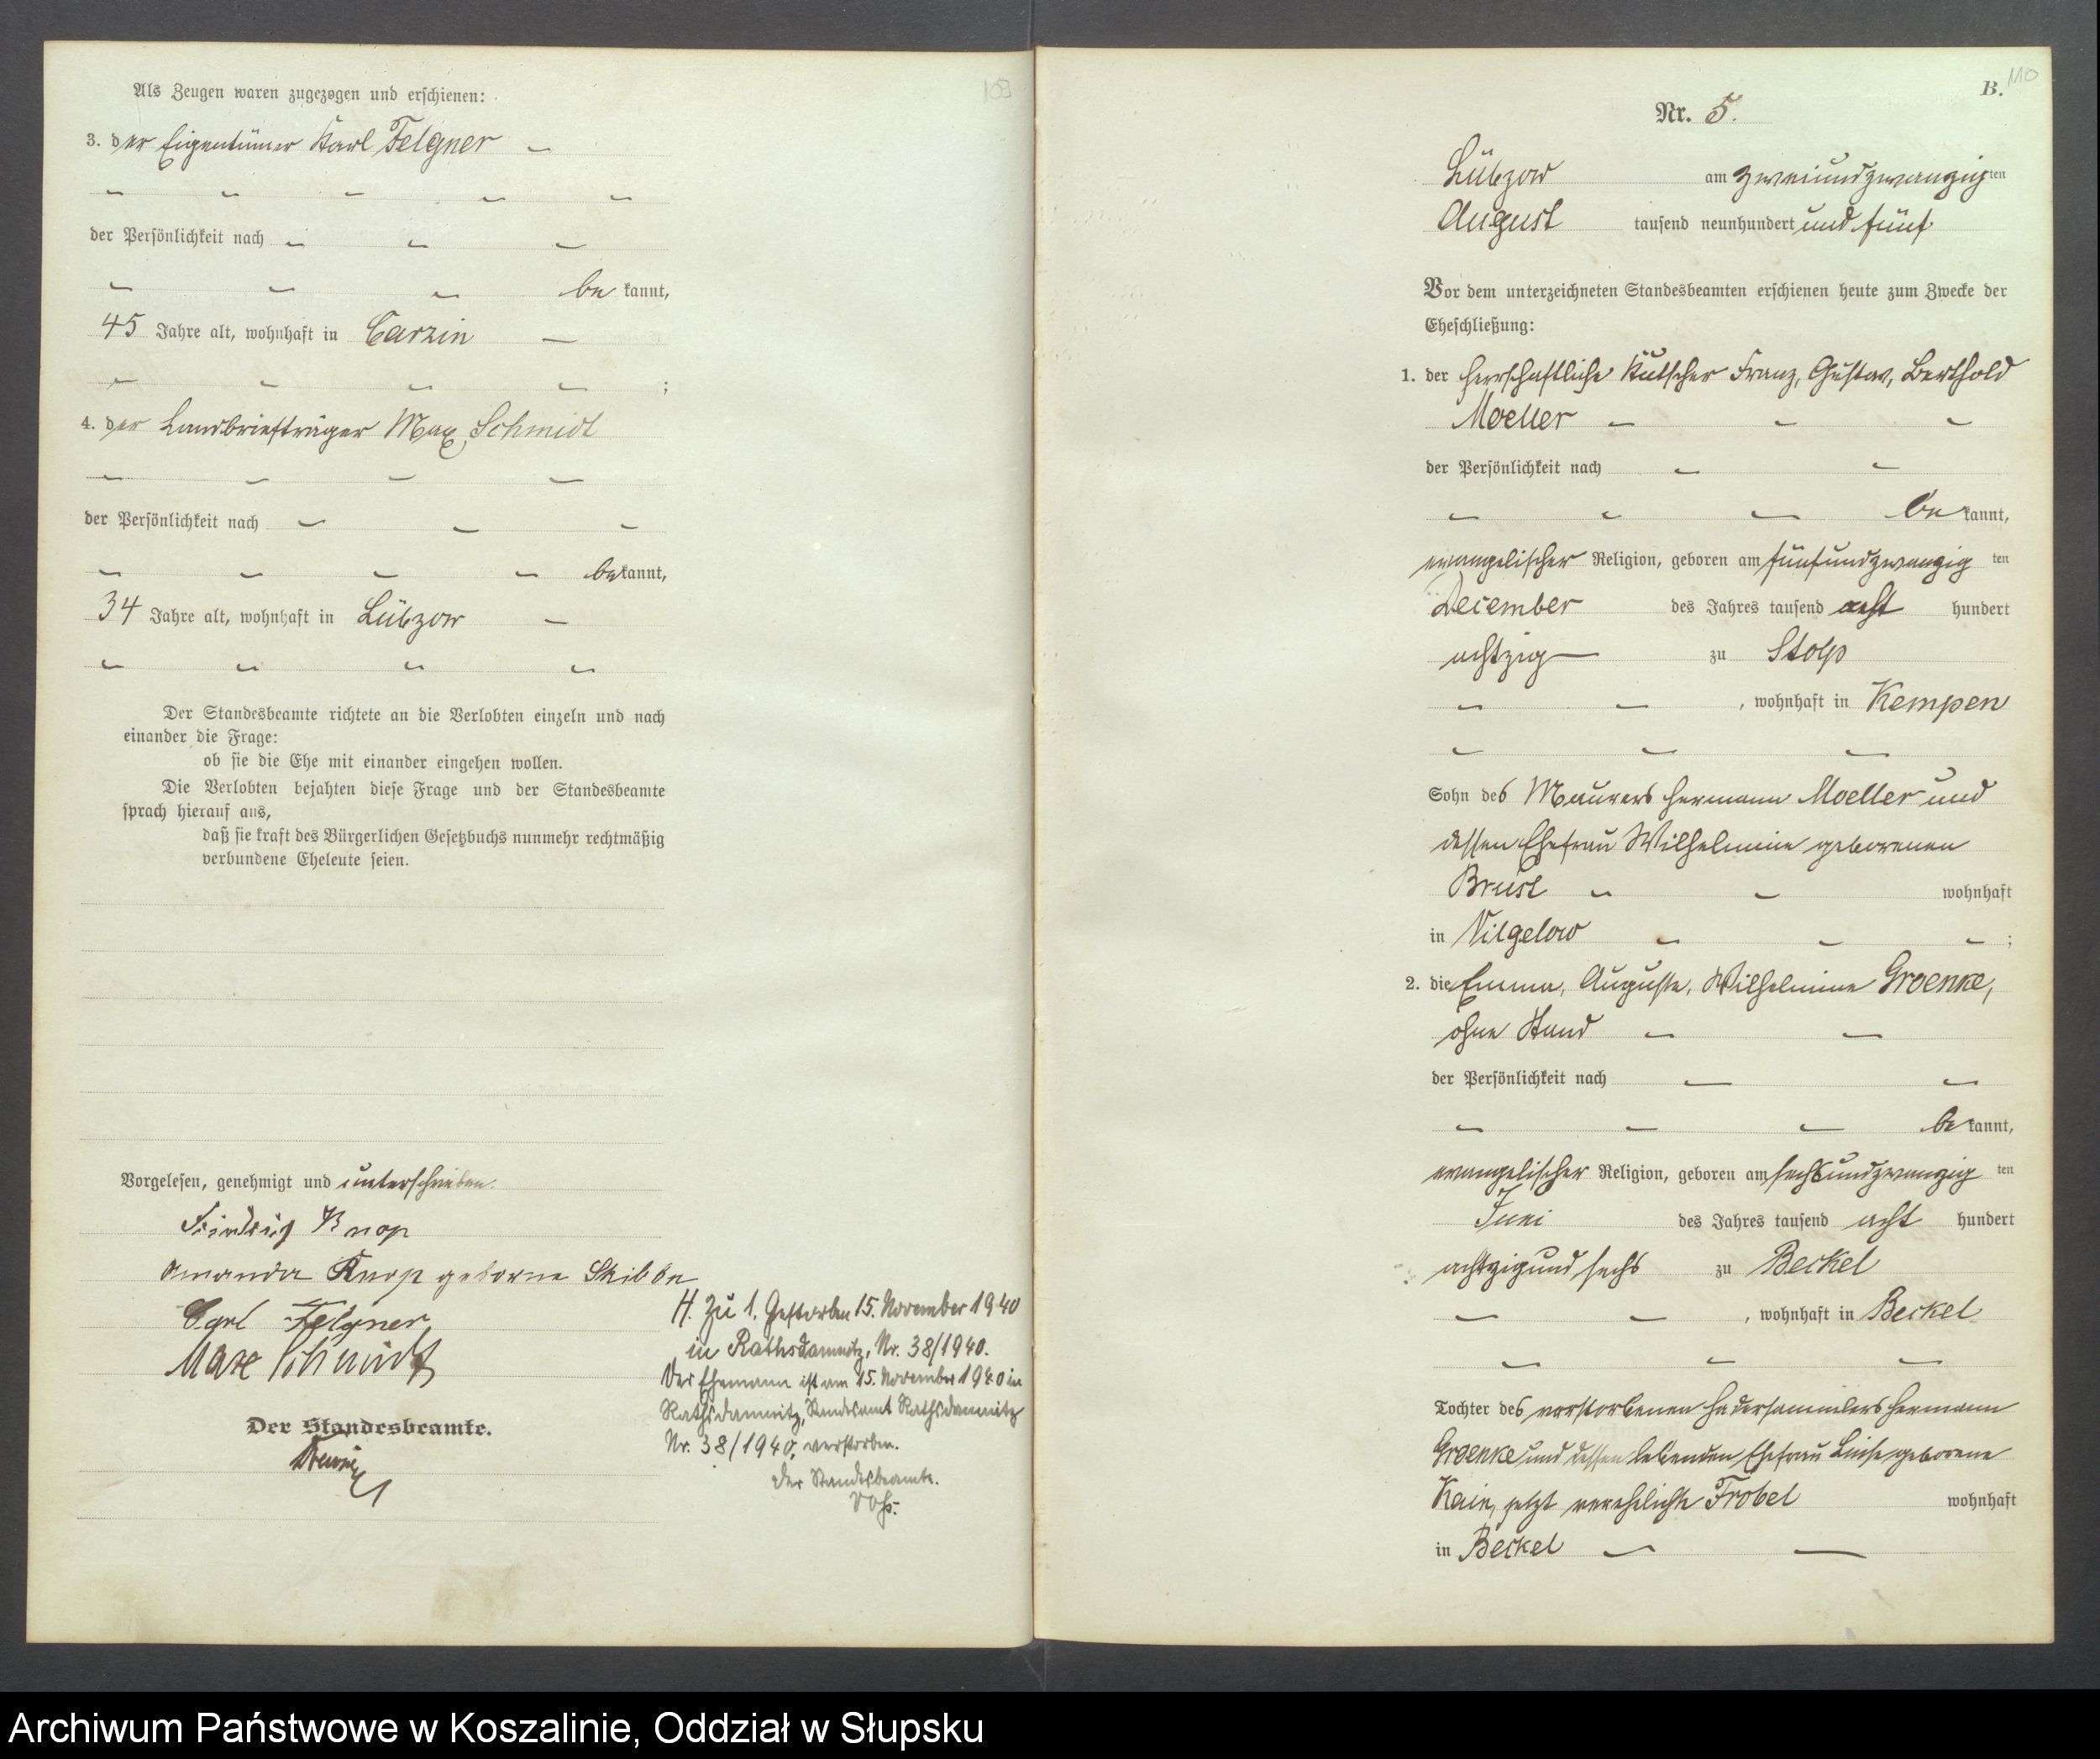 109
Als Zeugen waren zugezogen und erschienen:
3. der Eigentümer Karl Felgner
der Persönlichkeit nach
be kannt,
45 Jahre alt, wohnhaft in Carzin
;
4. der Landbriefträger Max Schmidt
der Persönlichkeit nach
bekannt,
34 Jahre alt, wohnhaft in Lübzow
Der Standesbeamte richtete an die Verlobten einzeln und nach
einander die Frage:
ob sie die Ehe mit einander eingehen wollen.
Die Verlobten bejahten diese Frage und der Standesbeamte
sprach hierauf aus,
daß sie kraft des Bürgerlichen Gesetzbuchs nunmehr rechtmäßig
verbundene Eheleute seien.
Vorgelesen, genehmigt und unterschrieben.
Friedrich Knop
Amanda Knop geborne Skibbe
Carl Felgner
Max Schmidt
Der Standesbeamte.
H. Zu 1. Gestorben 15. November 1940
in Rathsdamnitz, Nr. 38/1940.
Der Ehemann ist am 15. November 1940 in
Rathsdamnitz, Standesamt Rathsdamnitz
Nr. 38/1940, verstorben.
Der Standesbeamte.
B. 110
Nr. 5.
Lübzow am zweiundzwanzigten
August tausend neunhundert und fünf
Vor dem unterzeichneten Standesbeamten erschienen heute zum Zwecke der
Eheschließung:
1. der herrschaftliche Kutscher Franz, Gustav, Berthold
Moeller
der Persönlichkeit nach
be kannt,
evangelischer Religion, geboren am fünfundzwanzig ten
December des Jahres tausend acht hundert
achtzig zu Stolp
, wohnhaft in Kempen
Sohn des Maurers Hermann Moeller und
dessen Ehefrau Wilhelmine geborenen
Brust wohnhaft
in Vilgelow ;
2. die Emma, Auguste, Wilhelmine Groenke,
ohne Stand
der Persönlichkeit nach
be kannt,
evangelischer Religion, geboren am sechsundzwanzig ten
Juni des Jahres tausend acht hundert
achtzigundsechs zu Beckel
, wohnhaft in Beckel
Tochter des verstorbenen Hadersammlers Hermann
Groenke und dessen lebenden Ehefrau Luise geborene
Kain, jetzt verehelichte Frobel wohnhaft
in Beckel
Archiwum Państwowe w Koszalinie, Oddział w Słupsku